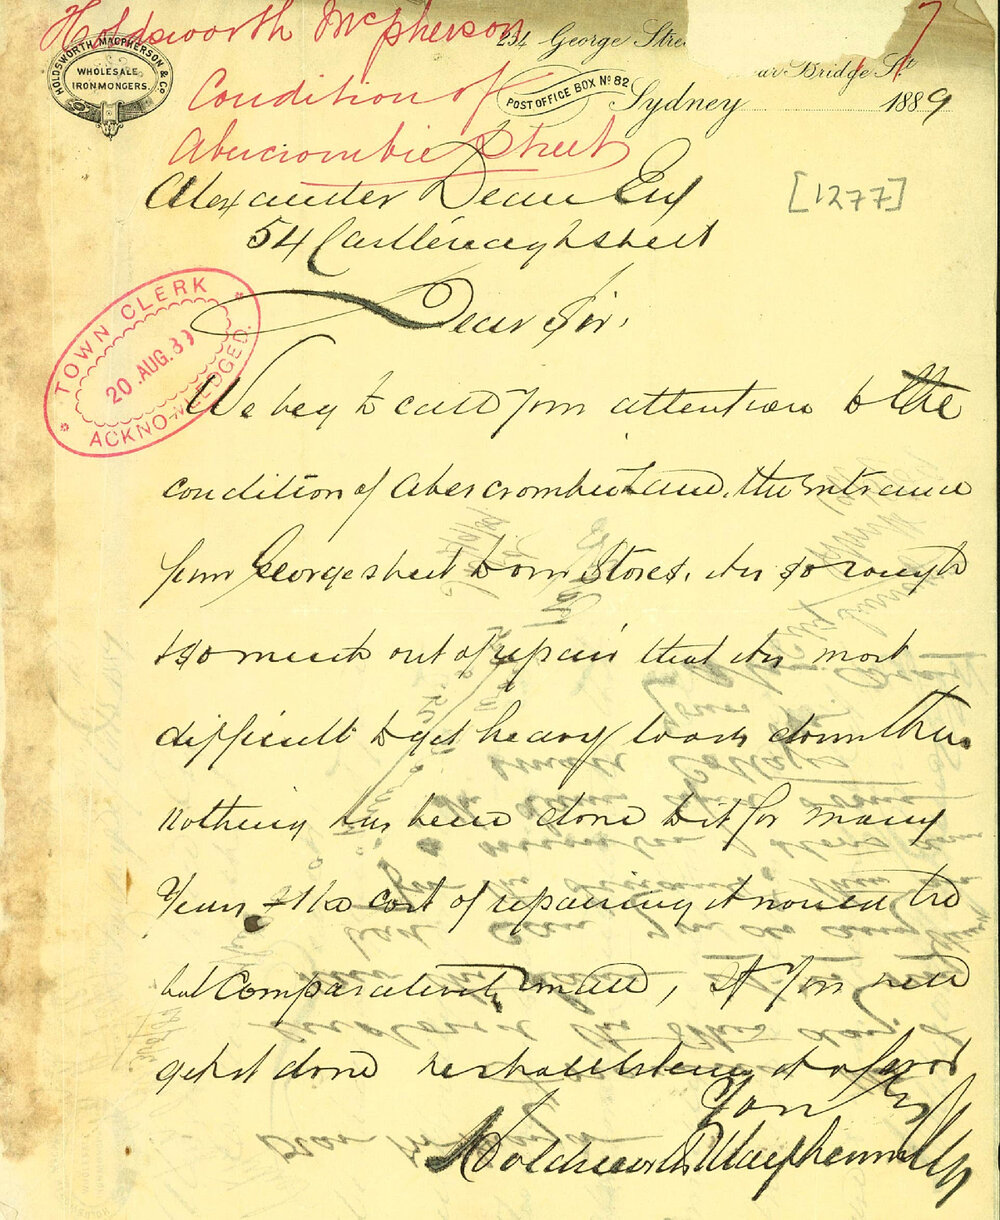 Holdsworth McPherson
Condition of
Abercrombie Street
HOLDSWORTH MACPHERSON & Co
WHOLESALE
IRONMONGERS.
254 George Stre
ar Bridge St
POST OFFICE BOX No 82
Sydney 1889
7
[1277]
Alexander Dean Esq
54 Castlereagh Street
Dear Sir,
TOWN CLERK
20 AUG. 89
ACKNOWLEDGED.
We beg to call your attention to the
condition of Abercrombie Lane, the entrance
from George street to our Stores, it is so rough
& so much out of repair that it is most
difficult to get heavy loads down there
nothing has been done to it for many
Years & the cost of repairing it would be
but Comparatively small, If You will
get it done we shall esteem it a favor
Yours
Holdsworth Macpherson & Co